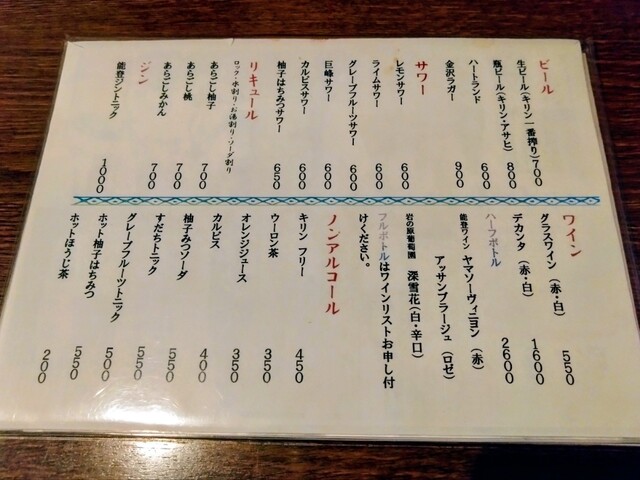 ビール
生ビール(キリン一番搾り)700
瓶ビール(キリン・アサヒ) 800
ハートランド 600
金沢ラガー 900
サワー
レモンサワー 600
ライムサワー 600
グレープフルーツサワー 600
巨峰サワー 600
カルピスサワー 600
柚子はちみつサワー 650
リキュール
ロック・水割り・お湯割り・ソーダ割り
あらごし柚子 700
あらごし桃 700
あらごしみかん 700
ジン
能登ジントニック 1000
ワイン
グラスワイン(赤・白) 550
デカンタ(赤・白) 1600
ハーフボトル 2600
能登ワイン ヤマソーヴィニヨン(赤)
アッサンブラージュ(ロゼ)
岩の原葡萄園 深雪花(白・辛口)
フルボトルはワインリストお申し付
けください。
ノンアルコール
キリン フリー 450
ウーロン茶 350
オレンジジュース 350
カルピス 400
柚子みつソーダ 550
すだちトニック 550
グレープフルーツトニック 500
ホット柚子はちみつ 550
ホットほうじ茶 200